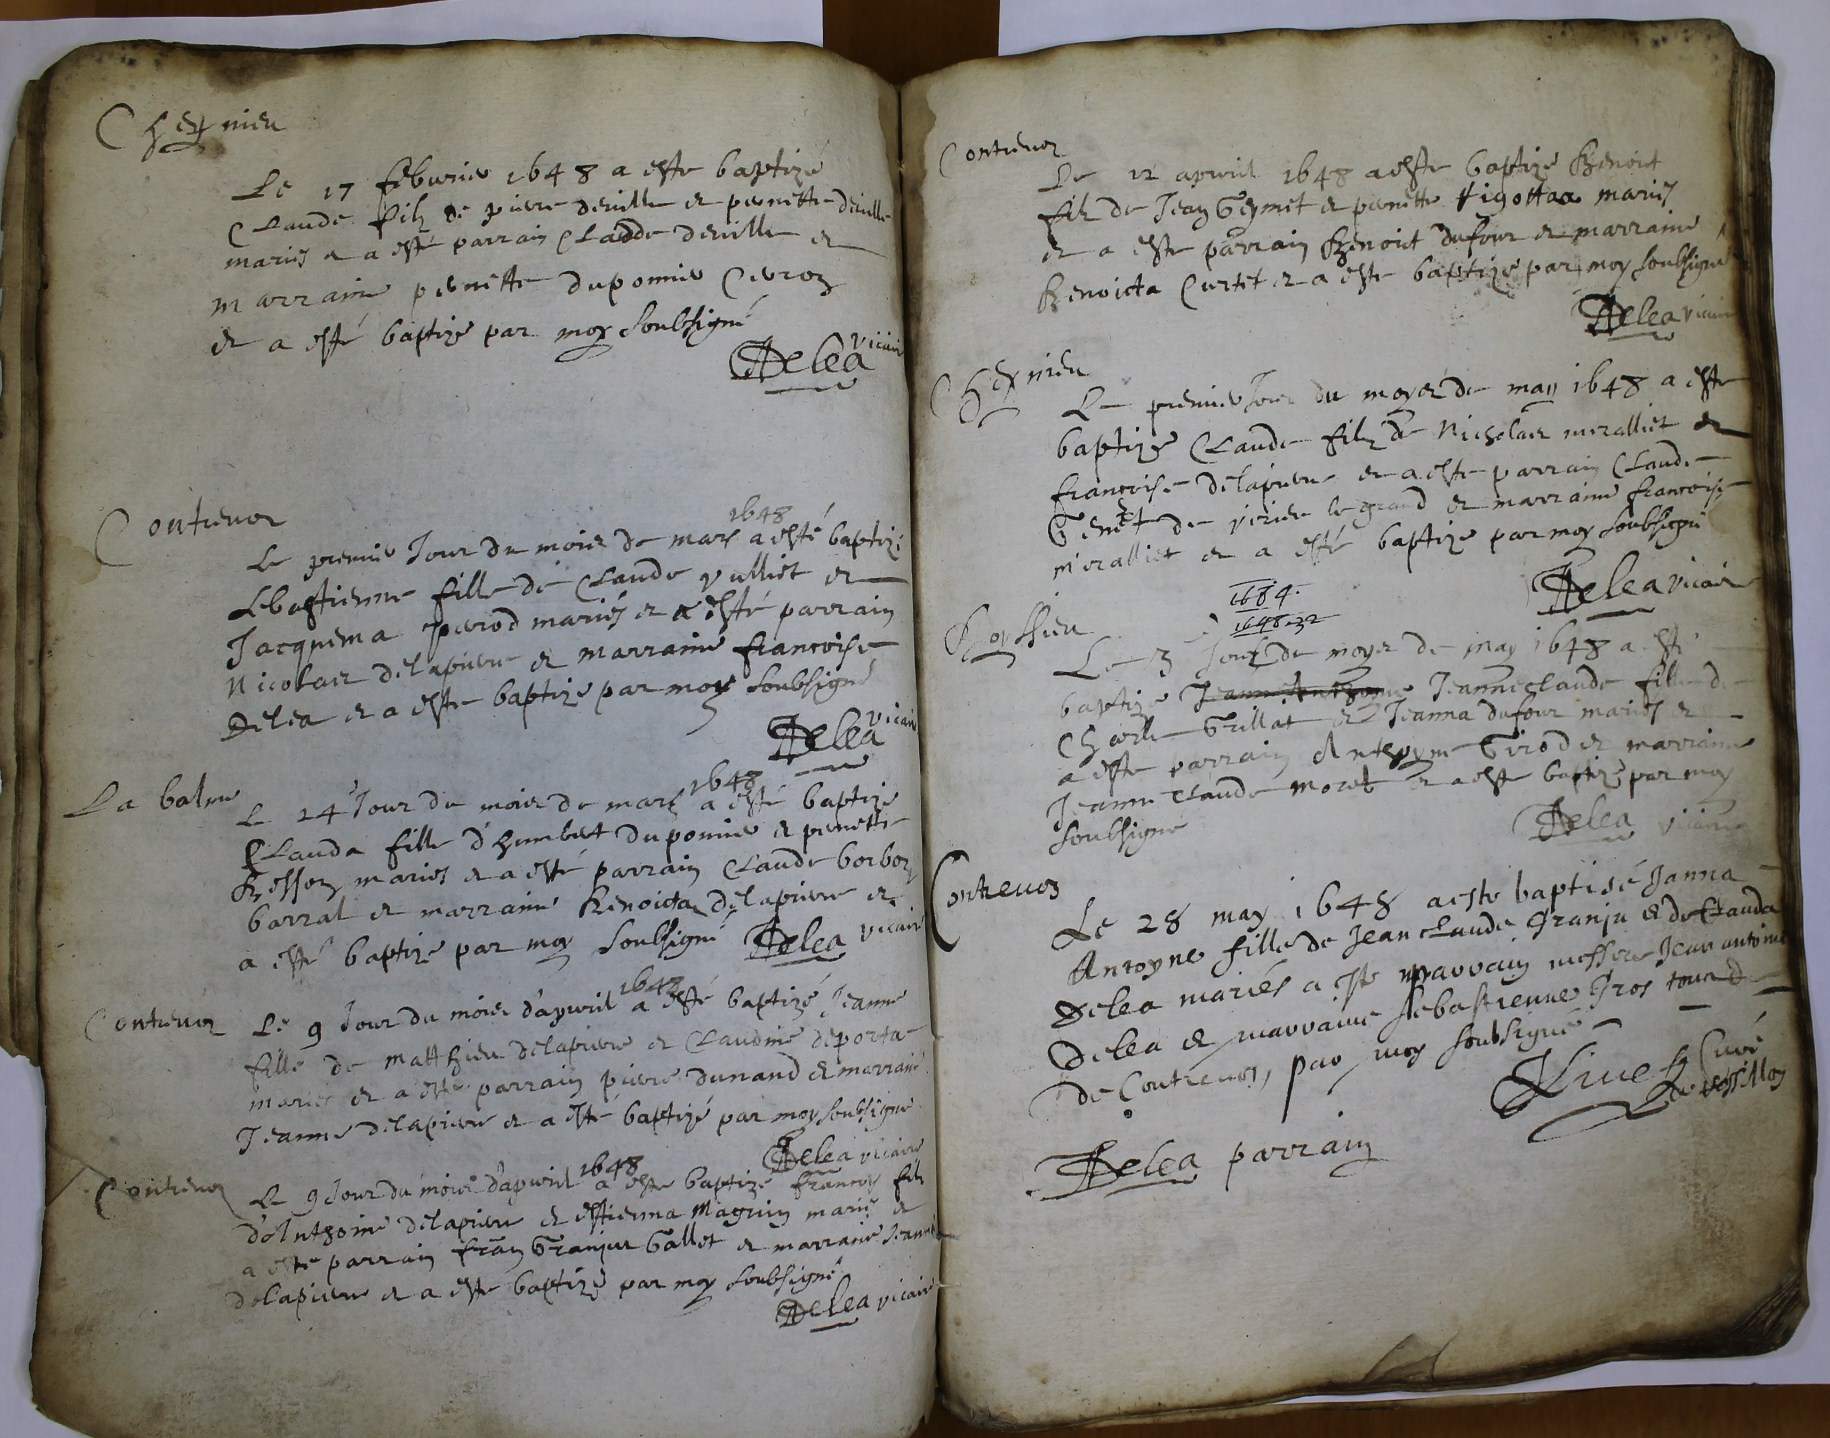 Cheynieu
Le 17 febvrier 1648 a esté baptizé
Claude filz de pierre deville et pernette deville
mariés et a esté parrain Claude deville et
marraine pernette duponnie Cevroz
et a esté baptizé par moy soubsigné
Delea vicaire
Contrevoz
1648
Le premier Jour du mois de mars a esté baptizé
Sebastienne fille de Claude vulliet et
Jacquema perrod mariés et a esté parrain
Nicolas delapierre et marraine francoise
Delea et a esté baptizé par moy soubsigné
Delea vicaire
La balme
1648
Le 24 Jour du mois de mars a esté baptizé
Clauda fille d'humbert duponnie et pernette
Besson mariés et a esté parrain Claude borbon
barral et marraine Benoicta delapierre et
a esté baptizé par moy soubsigné Delea vicaire
1648
Contrevoz Le 9 Jour du mois d'apvril a esté baptizé Jeanne
fille de Matthieu delapierre et Claudine deporta
mariés et a esté parrain pierre dunand et marraine
Jeanne delapierre et a esté baptizé par moy soubsigné
Delea vicaire
1648
Contrevoz Le 9 Jour du mois d'apvril a esté baptizé francoy filz
d'Anthoine delapierre et estienna Magnin mariés et
a esté parrain fran Granjut Gallet et marraine Jeanne
delapierre et a esté baptizé par moy soubsigné
Delea vicaire
Contrevoz
Le 12 apvril 1648 a esté baptizé Benoict
filz de Jean Geymet et pernette mariés
et a esté parrain Benoict dufour et marraine
Benoicta Curtet et a esté baptizé par moy soubsigné
Delea vicaire
Cheynieu
Le premier Jour du moys de may 1648 a esté
baptizé Claude filz de Nicholas meralliet et
francoise delapierre et a esté parrain Claude
Genet de virieu le grand et marraine francoise
meralliet et a esté baptizé par moy soubsigné
Delea vicaire
1684.
1648-32
Rossieu
Le 3 Jour de moys de may 1648 a esté
baptizé Jeanneclaude fille de
Charle Grillat et Jeanna dufour mariés et
a esté parrain Anthoyne Girod et marraine
Jeanne Claude moret et a esté baptizé par moy
soubsigné
Delea vicaire
Contrevoz
Le 28 may 1648 a esté baptisé Janna
Antoyne fille de Jean claude Granju et de Clauda
Delea mariés a esté parrain messire Jean antoine
Delea et marraine Sebastienne Gros tous de
de Contrevoz, par moy soubsigné
Curé
Delea parrain